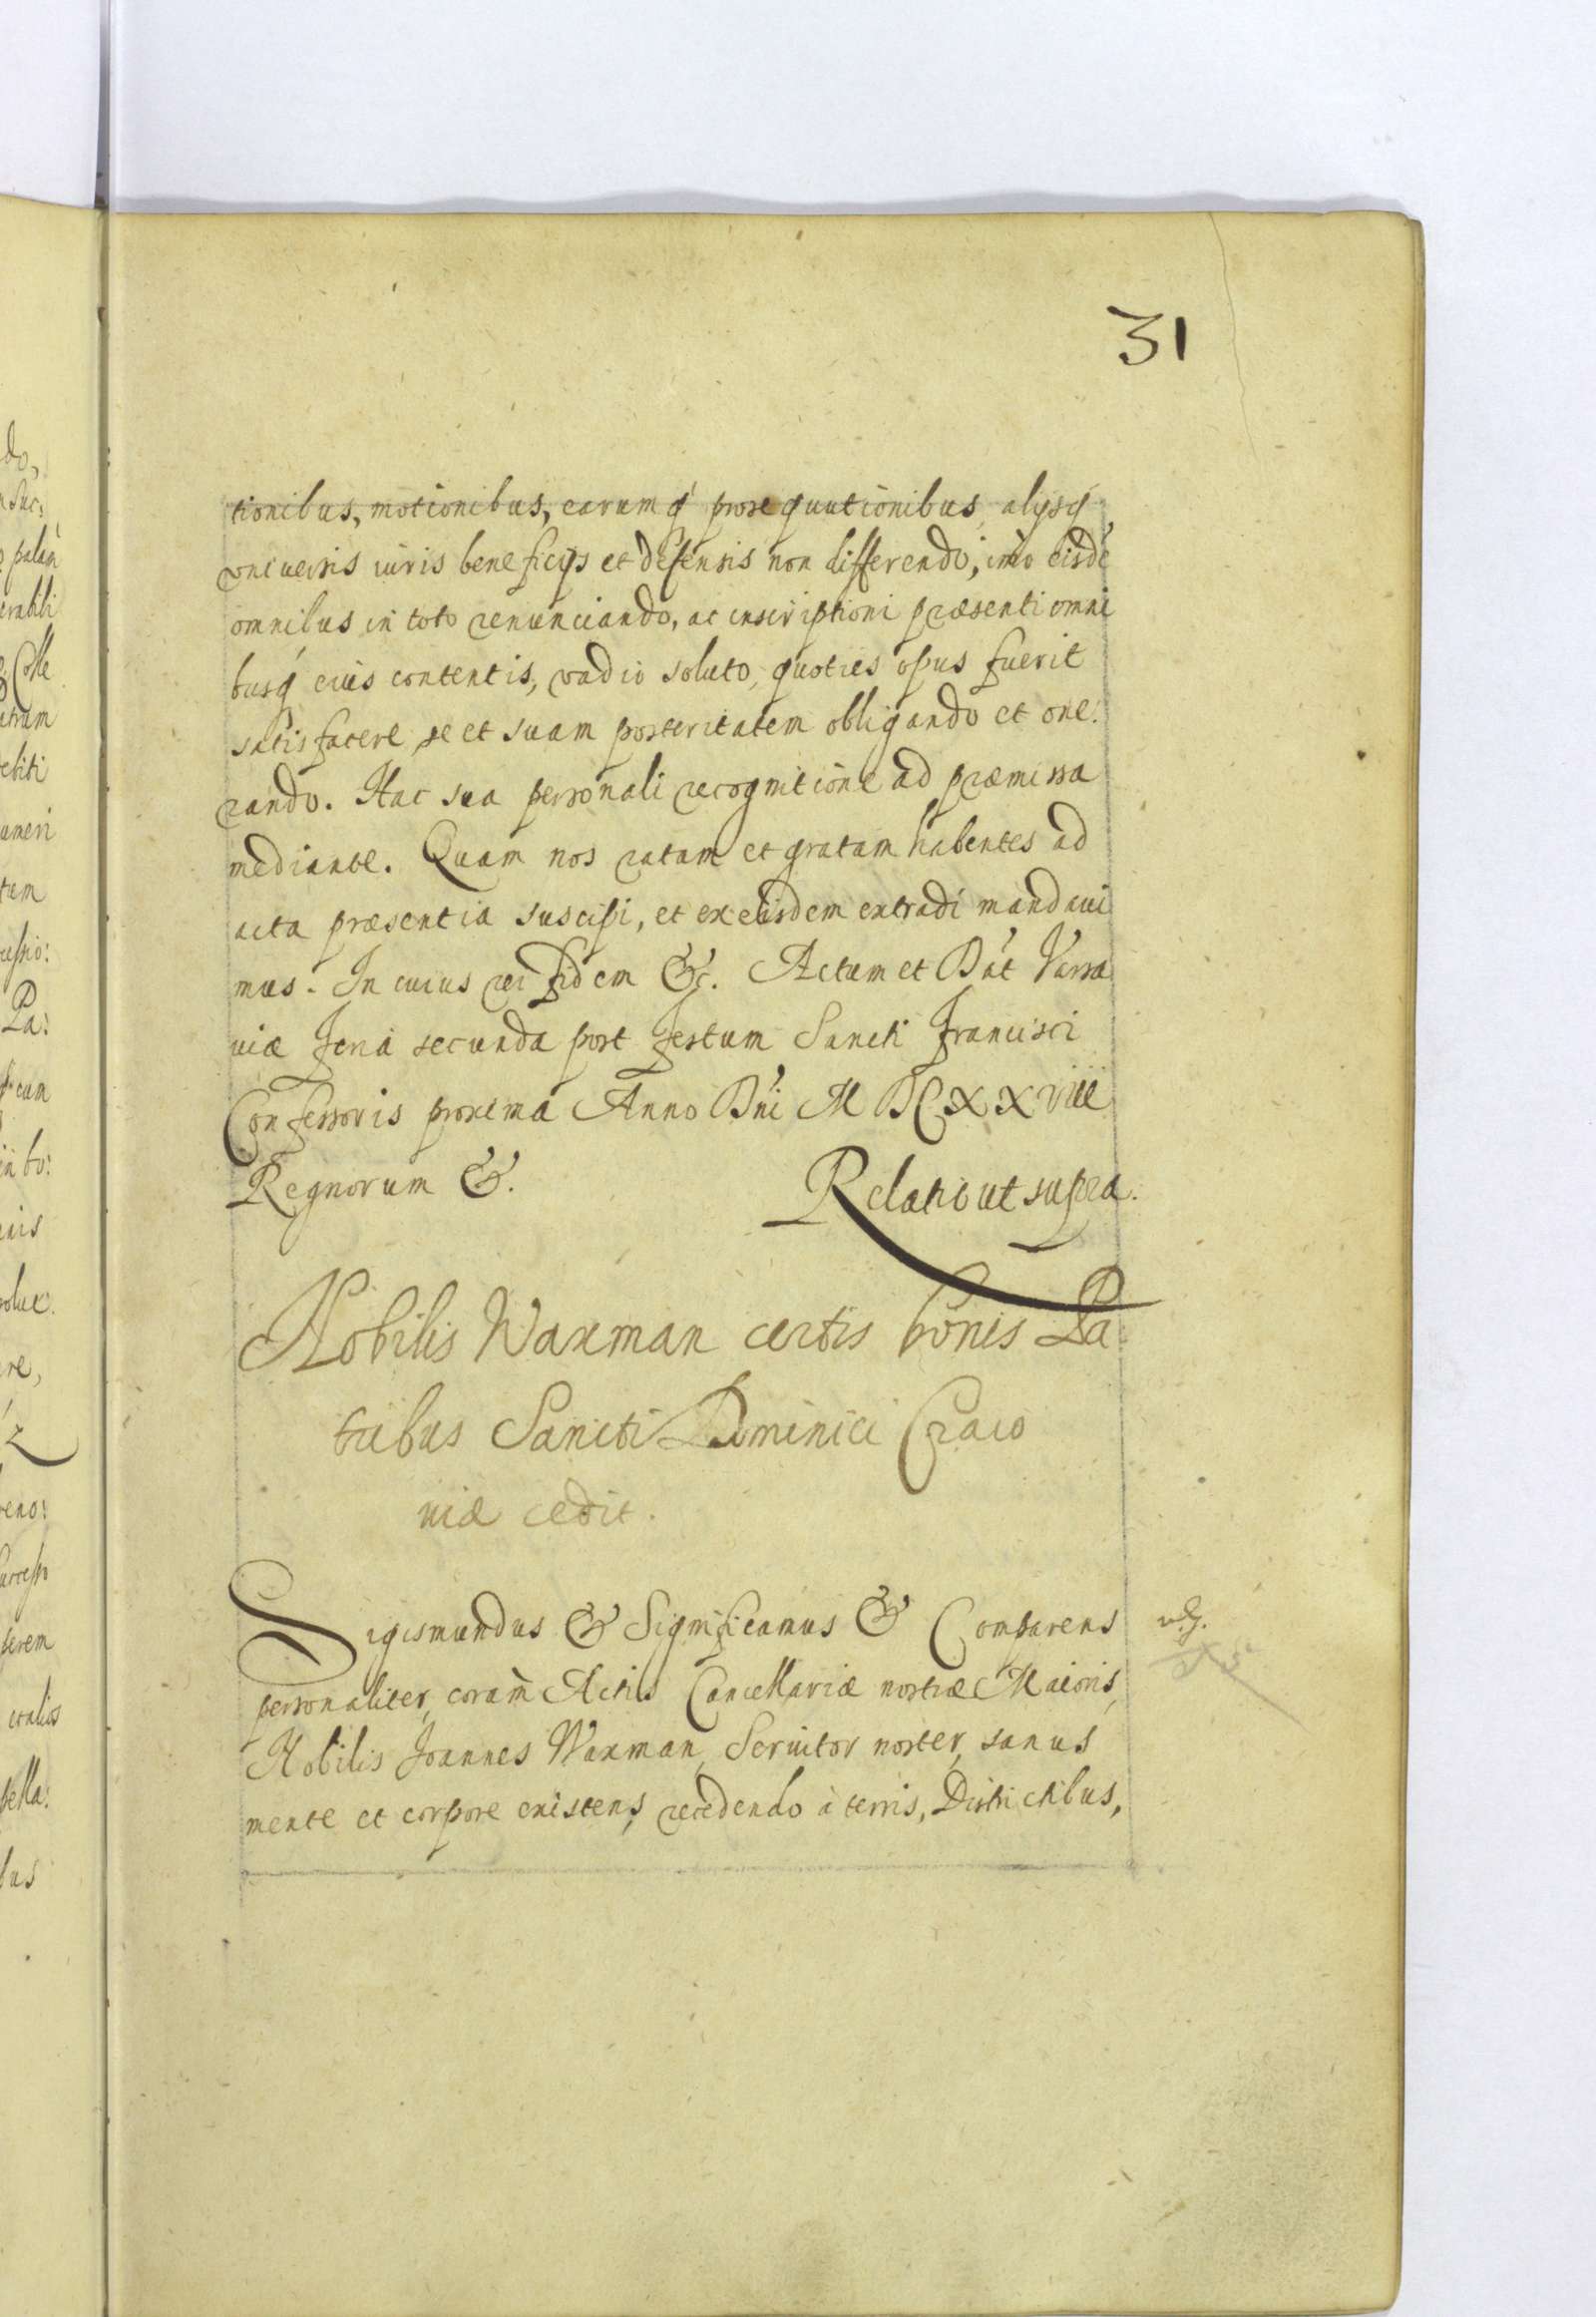 31
tionibus, motionibus, earumq́ prosequutionibus, alÿsq́,
vniuersis iuris beneficÿs et defensis non differendo, imò eisdē
omnibus in toto renunciando, ac inscriptioni præsenti omni
busq́ eius contentis, vadio soluto, quoties opus fuerit
satisfacere se et suam posteritatem obligando et one:
rando. Hac sua personali recognitione ad præmissa
mediante. Quam nos ratam et gratam habentes ad
acta præsentia suscipi, et ex eisdem extradi mandaui
mus. In cuius rei fidem &c. Actum et Dat́ Varsa
uiæ feria secunda post festum Sancti Francisci
Confessoris proxima Anno Dńi M DCXXVIII
Regnorum &.
Relatio ut supra.
Nobilis Waxman certis bonis Pa
tribus Sancti Dominici Craco
uiæ cedit.
Sigismundus & Significamus & Comparens
personaliter, coram Actis Cancellariæ nostræ Maioris,
Nobilis Joannes Waxman, Seruitor noster, sanus
mente et corpore existens, recedendo à terris, Districtibus,